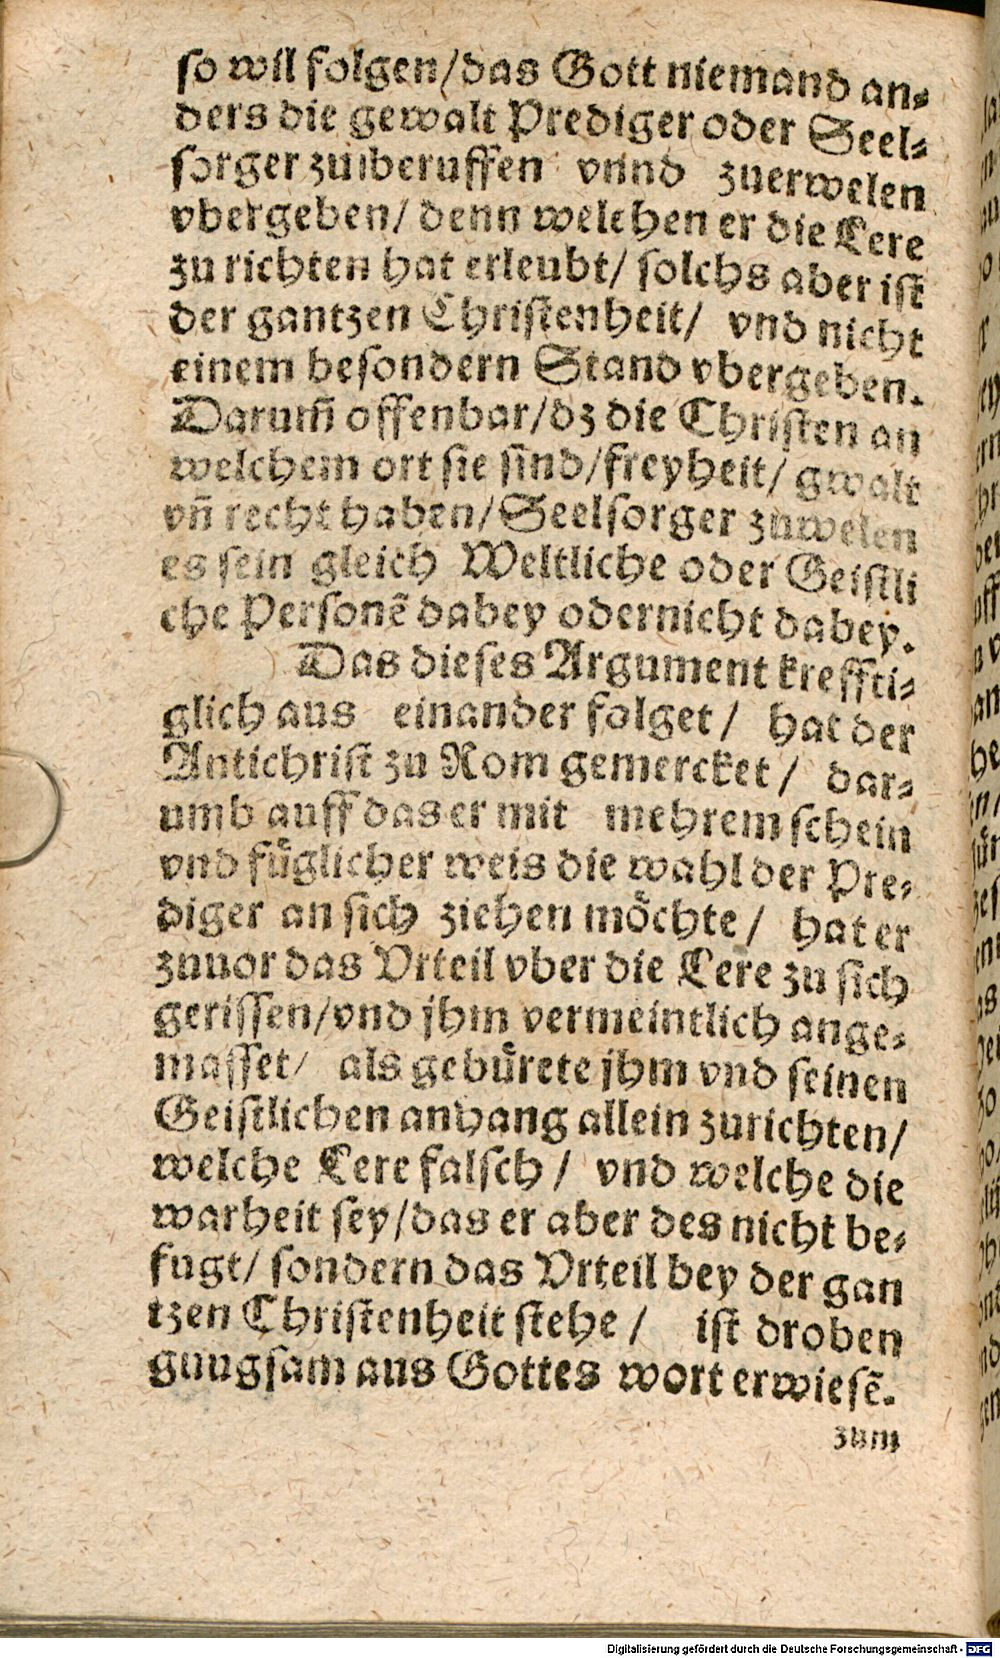 so wil folgen/das Gott niemand an⸗
ders die gewalt Prediger oder Seel⸗
sorger zuberuffen vnnd zuerwelen
vbergeben/ denn welchen er die Lere
zu richten hat erleubt/ solchs aber ist
der gantzen Christenheit/ vnd nicht
einem besondern Stand vbergeben.
Darum̃ offenbar/dz die Christen an
welchem ort sie sind/freyheit/ gwalt
vñ recht haben/Seelsorger zuwelen
es sein gleich Weltliche oder Geistli
che Personẽ dabey odernicht dabey.
Das dieses Argument kreffti⸗
glich aus einander folget/ hat der
Antichrist zu Rom gemercket/ dar⸗
umb auff das er mit mehrem schein
vnd fuͤglicher weis die wahl der Pre⸗
diger an sich ziehen moͤchte/ hat er
zuuor das Vrteil vber die Lere zu sich
gerissen/vnd jhm vermeintlich ange⸗
masset/ als gebuͤrete jhm vnd seinen
Geistlichen anhang allein zurichten/
welche Lere falsch/ vnd welche die
warheit sey/das er aber des nicht be⸗
fugt/ sondern das Vrteil bey der gan
tzen Christenheit stehe/ ist droben
gnugsam aus Gottes wort erwiesẽ.
zum
Digitalisierung gefördert durch die Deutsche Forschungsgemeinschaft - DFG